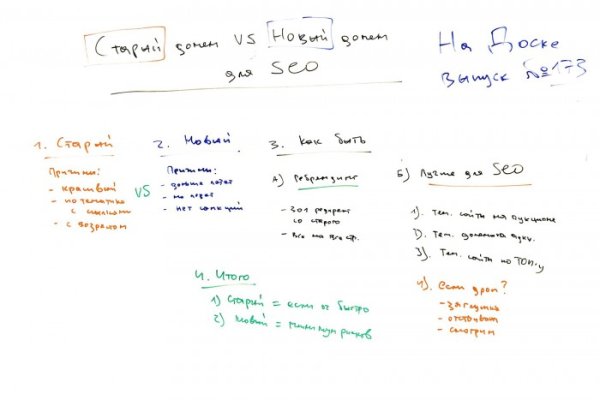 Старый домен VS Новый домен
для SEO
На Доске
выпуск №173
1. Старый
Причины:
- красивый
- по тематике
с ссылками
- с возрастом
VS
2. Новый
Причины:
- дольше
- не
- нет санкций
3. Как быть
А) Ребрендинг
- 301 редирект
со старого
- Все на все стр.
Б) Лучше для SEO
1). Тем. сайты на аукционе
2). Тем. домены аукц.
3). Тем. сайты по ТОПу
4). если дроп?
- заглушка
- отстаиваем
- смотрим
4. Итого
1) Старый = если ок быстро
2) Новый = минимум рисков